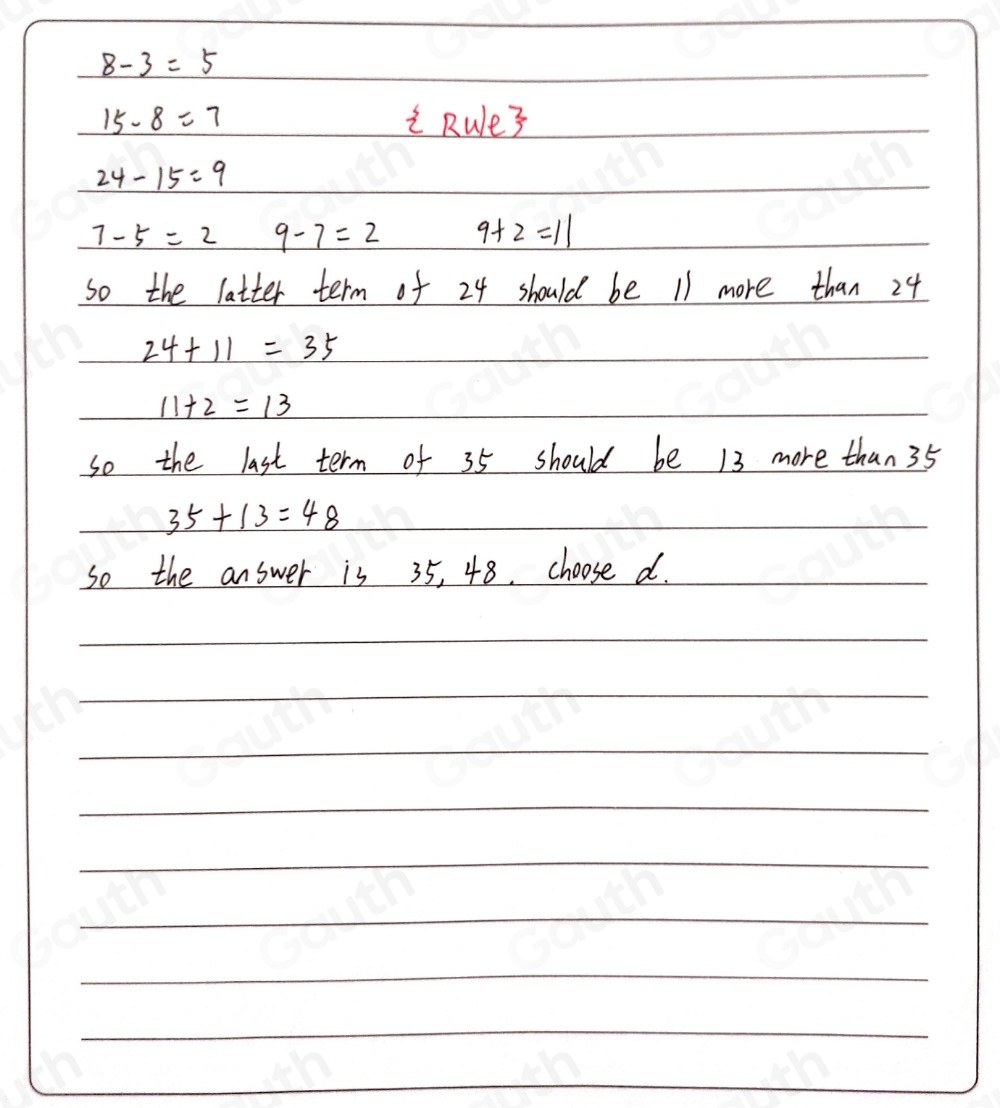 8-3=5
15-8=7 {Rule}
24-15=9
7-5=2 9-7=2 9+2=11
so the latter term of 24 should be 11 more than 24
24+11=35
11+2=13
so the last term of 35 should be 13 more than 35
35+13=48
so the answer is 35, 48. choose d.